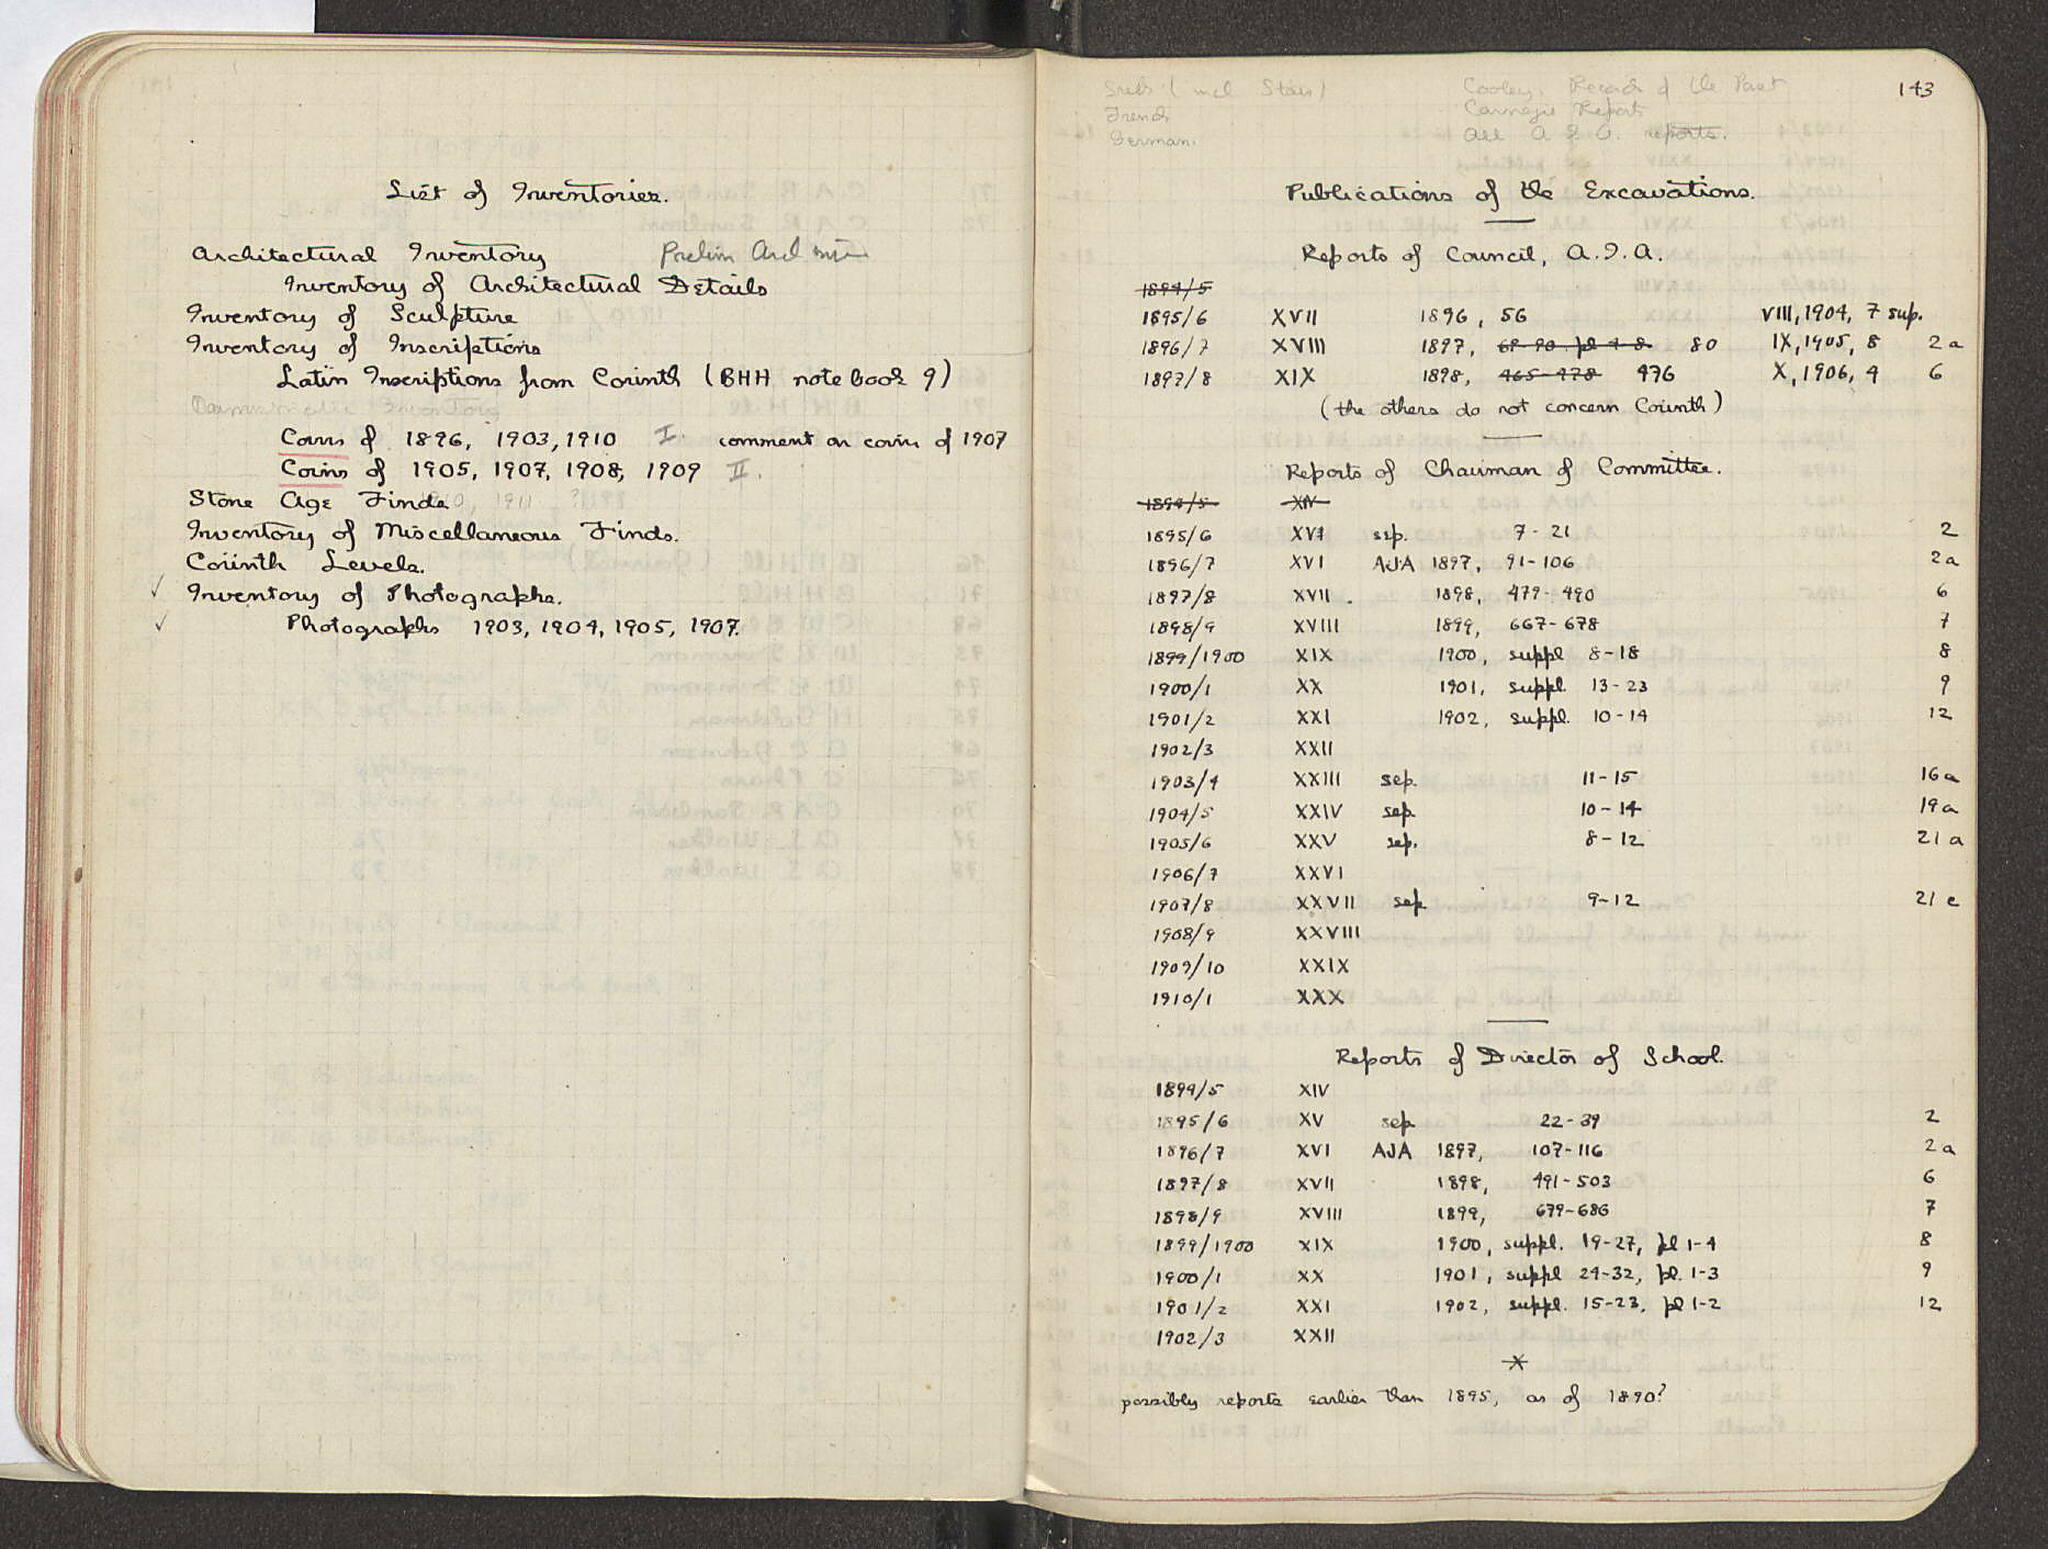 List of Inventories.
Architectural Inventory Prelim Arch
Inventory of Architectural Details
Inventory of Sculpture
Inventory of Inscriptions
Latin Inscriptions from Corinth (BHH note book 9)
Inventory
Coins of 1896, 1903, 1910 I. comment on coins of 1907
Coins of 1905, 1907, 1908, 1909 II.
Stone Age Finds 1911
Inventory of Miscellaneous Finds.
Corinth Levels.
✓ Inventory of Photographs.
✓ Photographs 1903, 1904, 1905, 1907.
143
(incl Stais) Cooley, Records of the Past
French Carnegie Report
German. all reports.
Publications of the Excavations.
Reports of Council, A.I.A.
1894/5
1895/6 XVII 1896, 56 VIII, 1904, 7 sup.
1896/7 XVIII 1897, 80 IX, 1905, 8 2a
1897/8 XIX 1898, 465-478 476 X, 1906, 4 6
(the others do not concern Corinth)
Reports of Chairman of Committee.
1894/5 XIV
1895/6 XVI sep. 7-21 2
1896/7 XVI AJA 1897, 91-106 2a
1897/8 XVII. 1898, 479-490 6
1898/9 XVIII 1899, 667-678 7
1899/1900 XIX 1900, suppl 8-18 8
1900/1 XX 1901, suppl. 13-23 9
1901/2 XXI 1902, suppl. 10-14 12
1902/3 XXII
1903/4 XXIII sep. 11-15 16a
1904/5 XXIV sep 10-14 19a
1905/6 XXV sep. 8-12 21a
1906/7 XXVI
1907/8 XXVII sep 9-12 21c
1908/9 XXVIII
1909/10 XXIX
1910/1 XXX
Reports of Director of School.
1894/5 XIV
1895/6 XV sep 22-39 2
1896/7 XVI AJA 1897, 107-116 2a
1897/8 XVII 1898, 491-503 6
1898/9 XVIII 1899, 679-686 7
1899/1900 XIX 1900, suppl. 19-27, pl 1-4 8
1900/1 XX 1901, suppl 24-32, pl. 1-3 9
1901/2 XXI 1902, suppl. 15-23, pl 1-2 12
1902/3 XXII
possibly reports earlier than 1895, as of 1890?